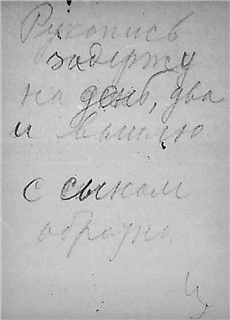 Рукопись
задержу
на день, два
и вышлю
с сыном
обратно.
Ц